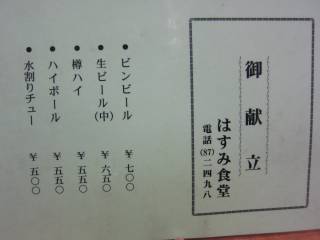 御献立
はすみ食堂
電話(87)二四九八
● ビンビール ￥七〇〇
● 生ビール(中) ￥六五〇
● 樽ハイ ￥五五〇
● ハイボール ￥五五〇
● 水割りチュー ￥五〇〇